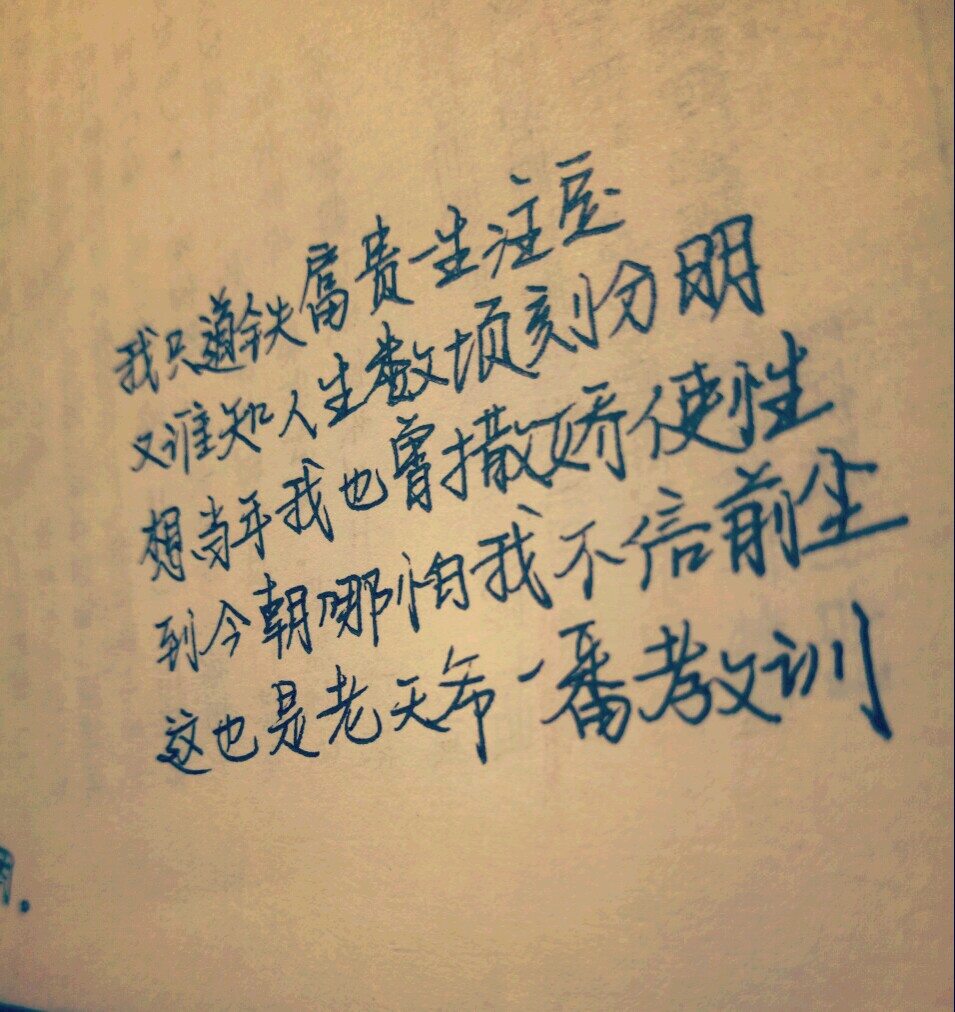 我只道铁富贵一生注定
又谁知人生数顷刻分明
想当年我也曾撒娇使性
到今朝哪怕我不信前尘
这也是老天爷一番教训